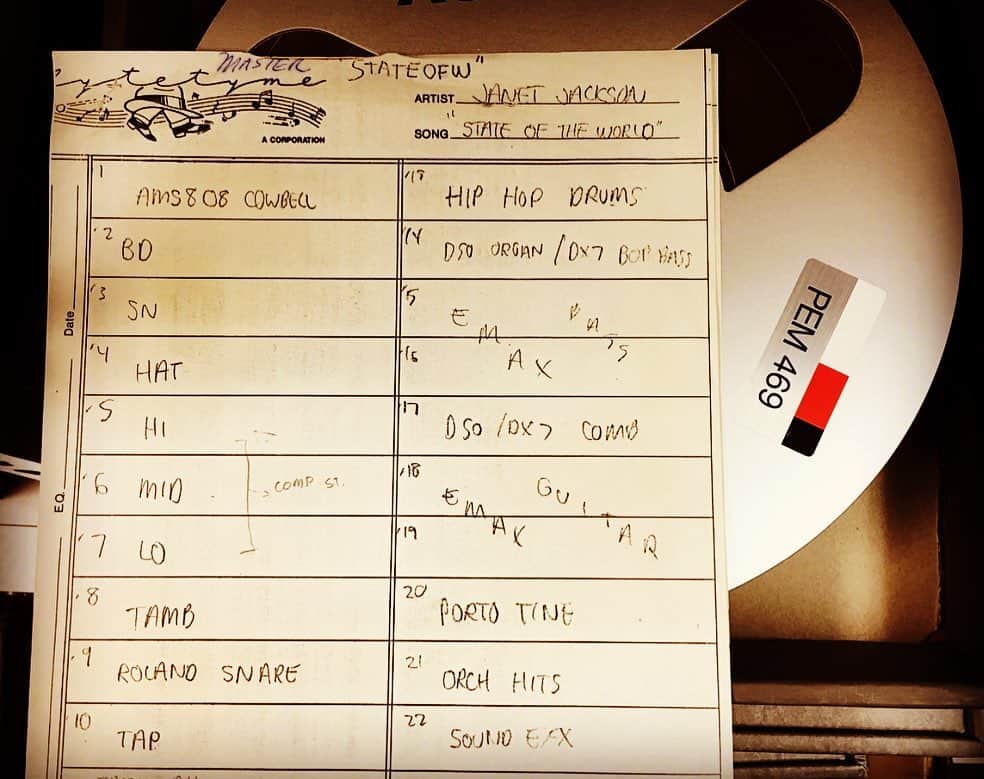 MASTER "STATEOFW"
ytetyme
A CORPORATION
ARTIST JANET JACKSON
SONG "STATE OF THE WORLD"
Date
EQ.
1 AMS 808 COWBELL
2 BD
3 SN
4 HAT
5 HI
6 MID
COMP ST.
7 LO
8 TAMB
9 ROLAND SNARE
10 TAP
13 HIP HOP DRUMS
14 D50 ORGAN / DX7 BOP BASS
15 EMAX
16
17 D50 / DX7 COMB
18 EMAX GUITAR
19
20 PORTO TINE
21 ORCH HITS
22 SOUND EFX
PEM 469